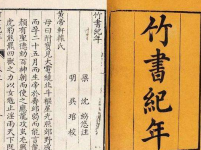 竹書紀年
竹書紀年
梁 沈約注
明 吳琯校
黃帝軒轅氏
母曰附寶見大電繞北斗樞星光照郊野感
而孕二十五月而生帝於壽丘弱而能言龍
顏有聖德劾百神朝而使之應龍攻蚩尤
虎豹熊羆四獸之力以女魃止淫雨天下既